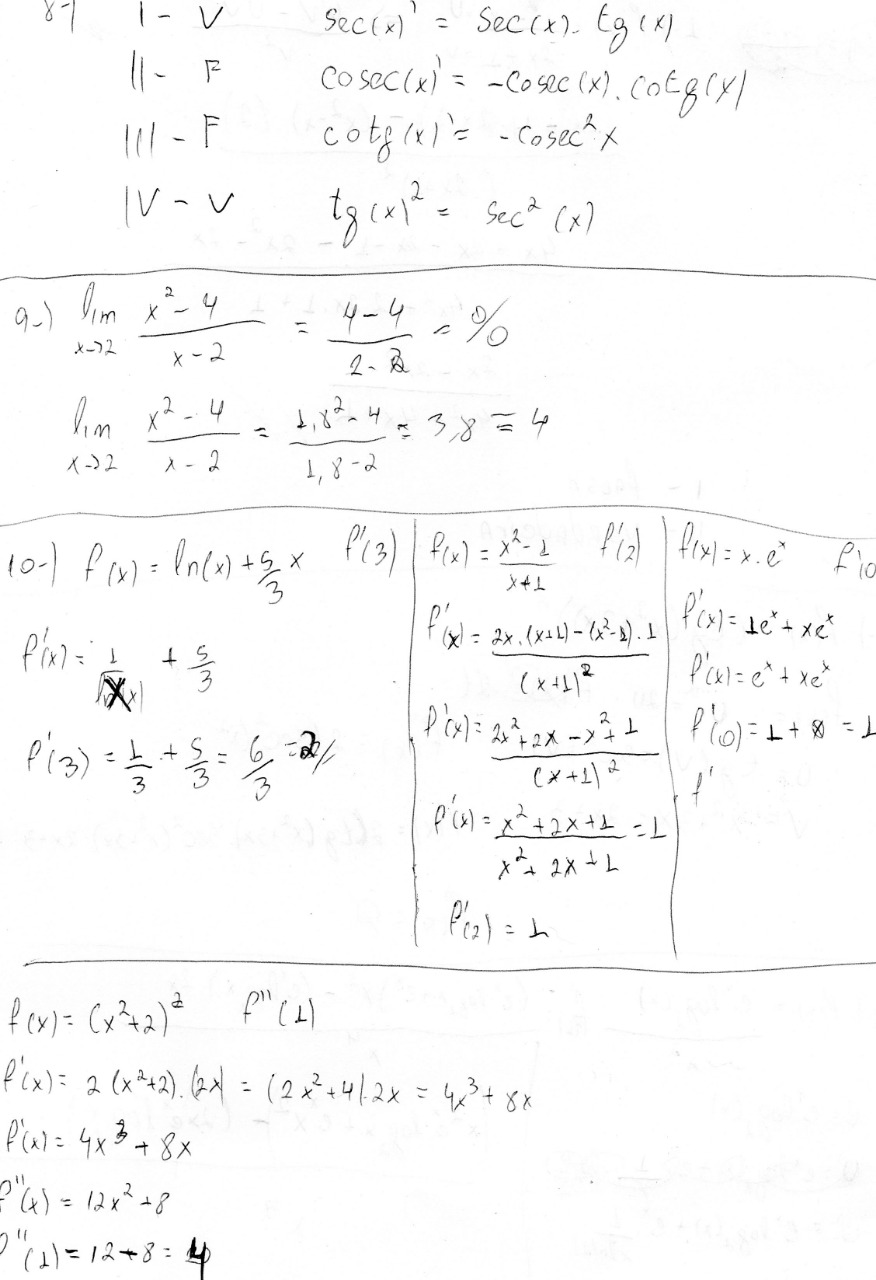 8-) I - V sec(x)' = sec(x). tg(x)
II - F cosec(x)' = -cosec(x). cotg(x)
III - F cotg(x)' = -cosec² x
IV - V tg(x)² = sec² (x)
9-) lim x→2 (x² - 4)/(x - 2) = (4 - 4)/(2 - 2) = 0/0
lim x→2 (x² - 4)/(x - 2) = (1,8² - 4)/(1,8 - 2) = 3,8 ≅ 4
10-) f(x) = ln(x) + 5/3 x f'(3)
f'(x) = 1/x + 5/3
f'(3) = 1/3 + 5/3 = 6/3 = 2//
f(x) = (x² - 1)/(x+1) f'(2)
f'(x) = (2x.(x+1) - (x² - 1).1)/(x+1)²
f'(x) = (2x² + 2x - x² + 1)/(x+1)²
f'(x) = (x² + 2x + 1)/(x² + 2x + 1) = 1
f'(2) = 1
f(x) = x.e^x f'(0
f'(x) = 1e^x + xe^x
f'(x) = e^x + xe^x
f'(0) = 1 + 0 = 1
f'
f(x) = (x²+2)² f''(1)
f'(x) = 2(x²+2).(2x) = (2x²+4).2x = 4x³ + 8x
f'(x) = 4x³ + 8x
f''(x) = 12x² + 8
f''(1) = 12 + 8 = 4